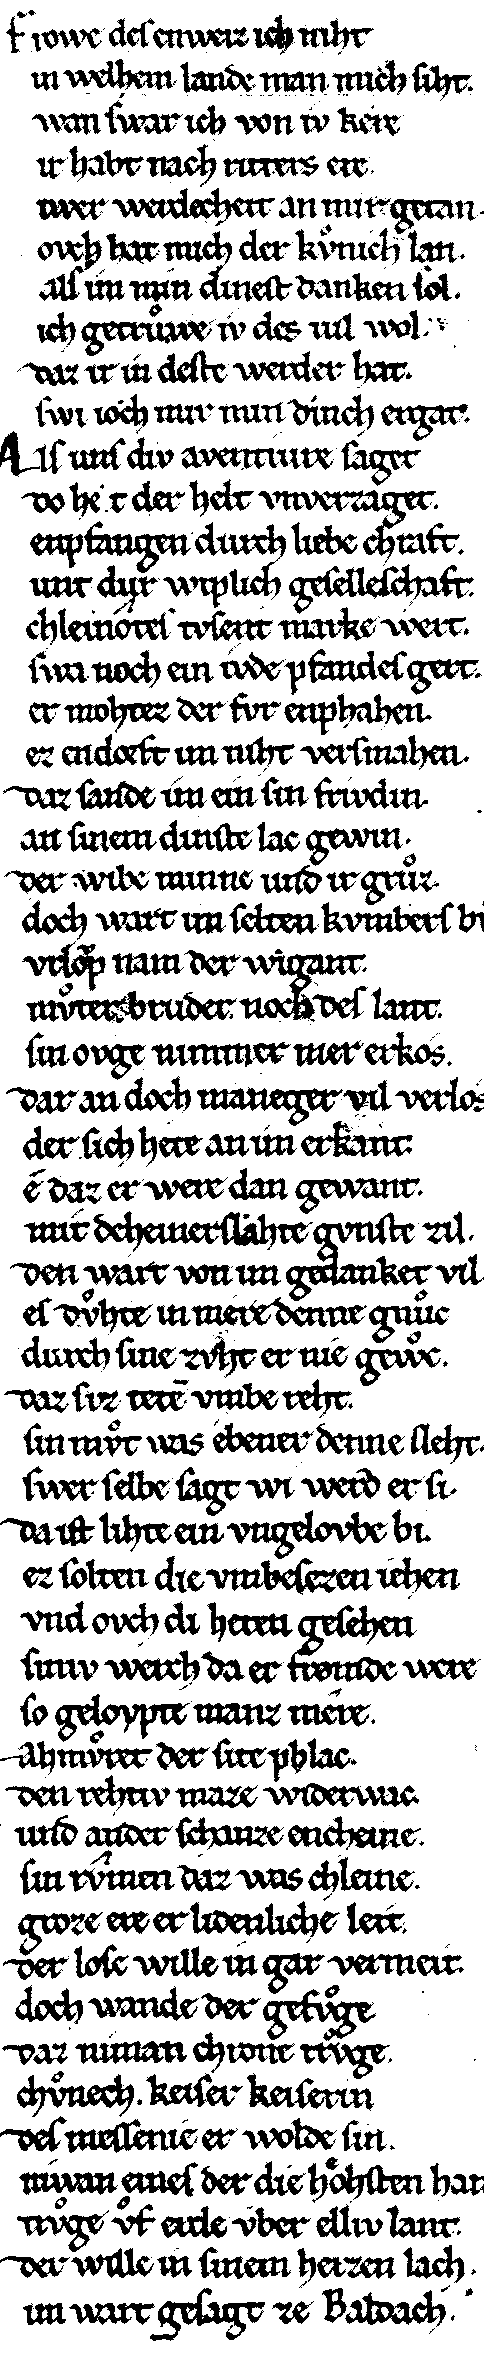 Frowe desenweiz ich niht
in welhem lande man mich siht.
wan swar ich von iv kere
ir habt nach riters ere.
iwer werdecheit an mir getan.
ovch hat mich der kvͦnich lan.
als im min dinest danken sol.
ich getrůwe iv des vil wol.
daz ir in deste werder hat.
swi ioch mir min dinch ergat.
Als uns div aventiure saget
do het der helt vnverzaget.
enpfangen durch liebe chraft.
unt durͮ wiplich geselleschaft.
chleinotes tvsent marke wert.
swa noch ein ivde pfandes gert.
er mohtez der fvr enphahen.
ez endorft im niht versmahen.
daz sande im ein sin frivdin.
an sinem dinste lac gewin.
der wibe minne und ir grůz.
doch wart im selten kvmbers bů
vrlop nam der wigant.
mvͦter bruder noch des lant.
sin ovge nimmer mer erkos.
dar an doch maneger vil verlos
der sich hete an im erkant.
ê daz er were dan gewant.
mit deheiner slahte gvnste zil.
den wart von im gedanket vil
es dvͦhte in mere denne gnůc
durch sine zvht er nie gewͦc.
daz siz tetē vmbe reht.
sin mvͦt was ebener denne sleht.
swer selbe sagt wi werd er si.
da ist lihte ein vngelovbe bi.
ez solten die vmbesezen iehen
vnd ovch di heten gesehen
siniv werch da er fromde were
so geloypte manz mere.
ahmvͦret der site phlac.
den rehtiv maze widerwac.
und ander schanze encheine.
sin rvͦmen daz was chleine.
groze ere er lidenliche leit.
der lose wille in gar vermeit.
doch wande der gefvͦge
daz niman chrone trvͦge.
chvͦnech. keiser keiserin
des messenie er wolde sin.
niwan eines der die hohsten han
trvͦge vͦf erde vber elliv lant.
der wille in sinem herzen lach.
im wart gesagt ze Baldach.